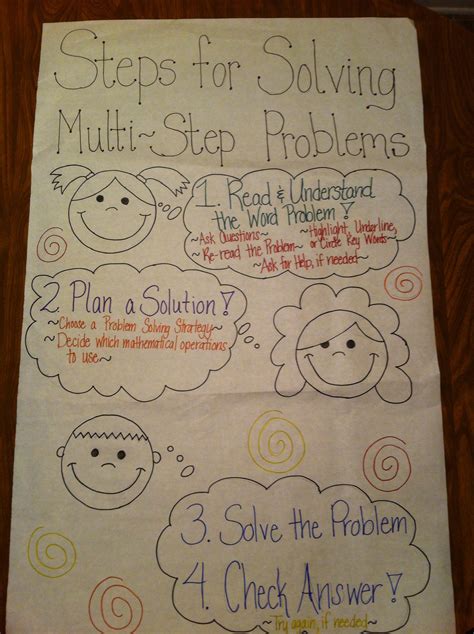 Steps for Solving
Multi~Step Problems
1. Read & Understand
the Word Problem!
~Ask Questions~
~Re-read the Problem~
~Highlight, Underline,
or Circle Key Words~
~Ask for Help, if needed~
2. Plan a Solution!
~Choose a Problem Solving Strategy~
~Decide which mathematical operations
to use~
3. Solve the Problem
4. Check Answer!
~Try again, if needed~